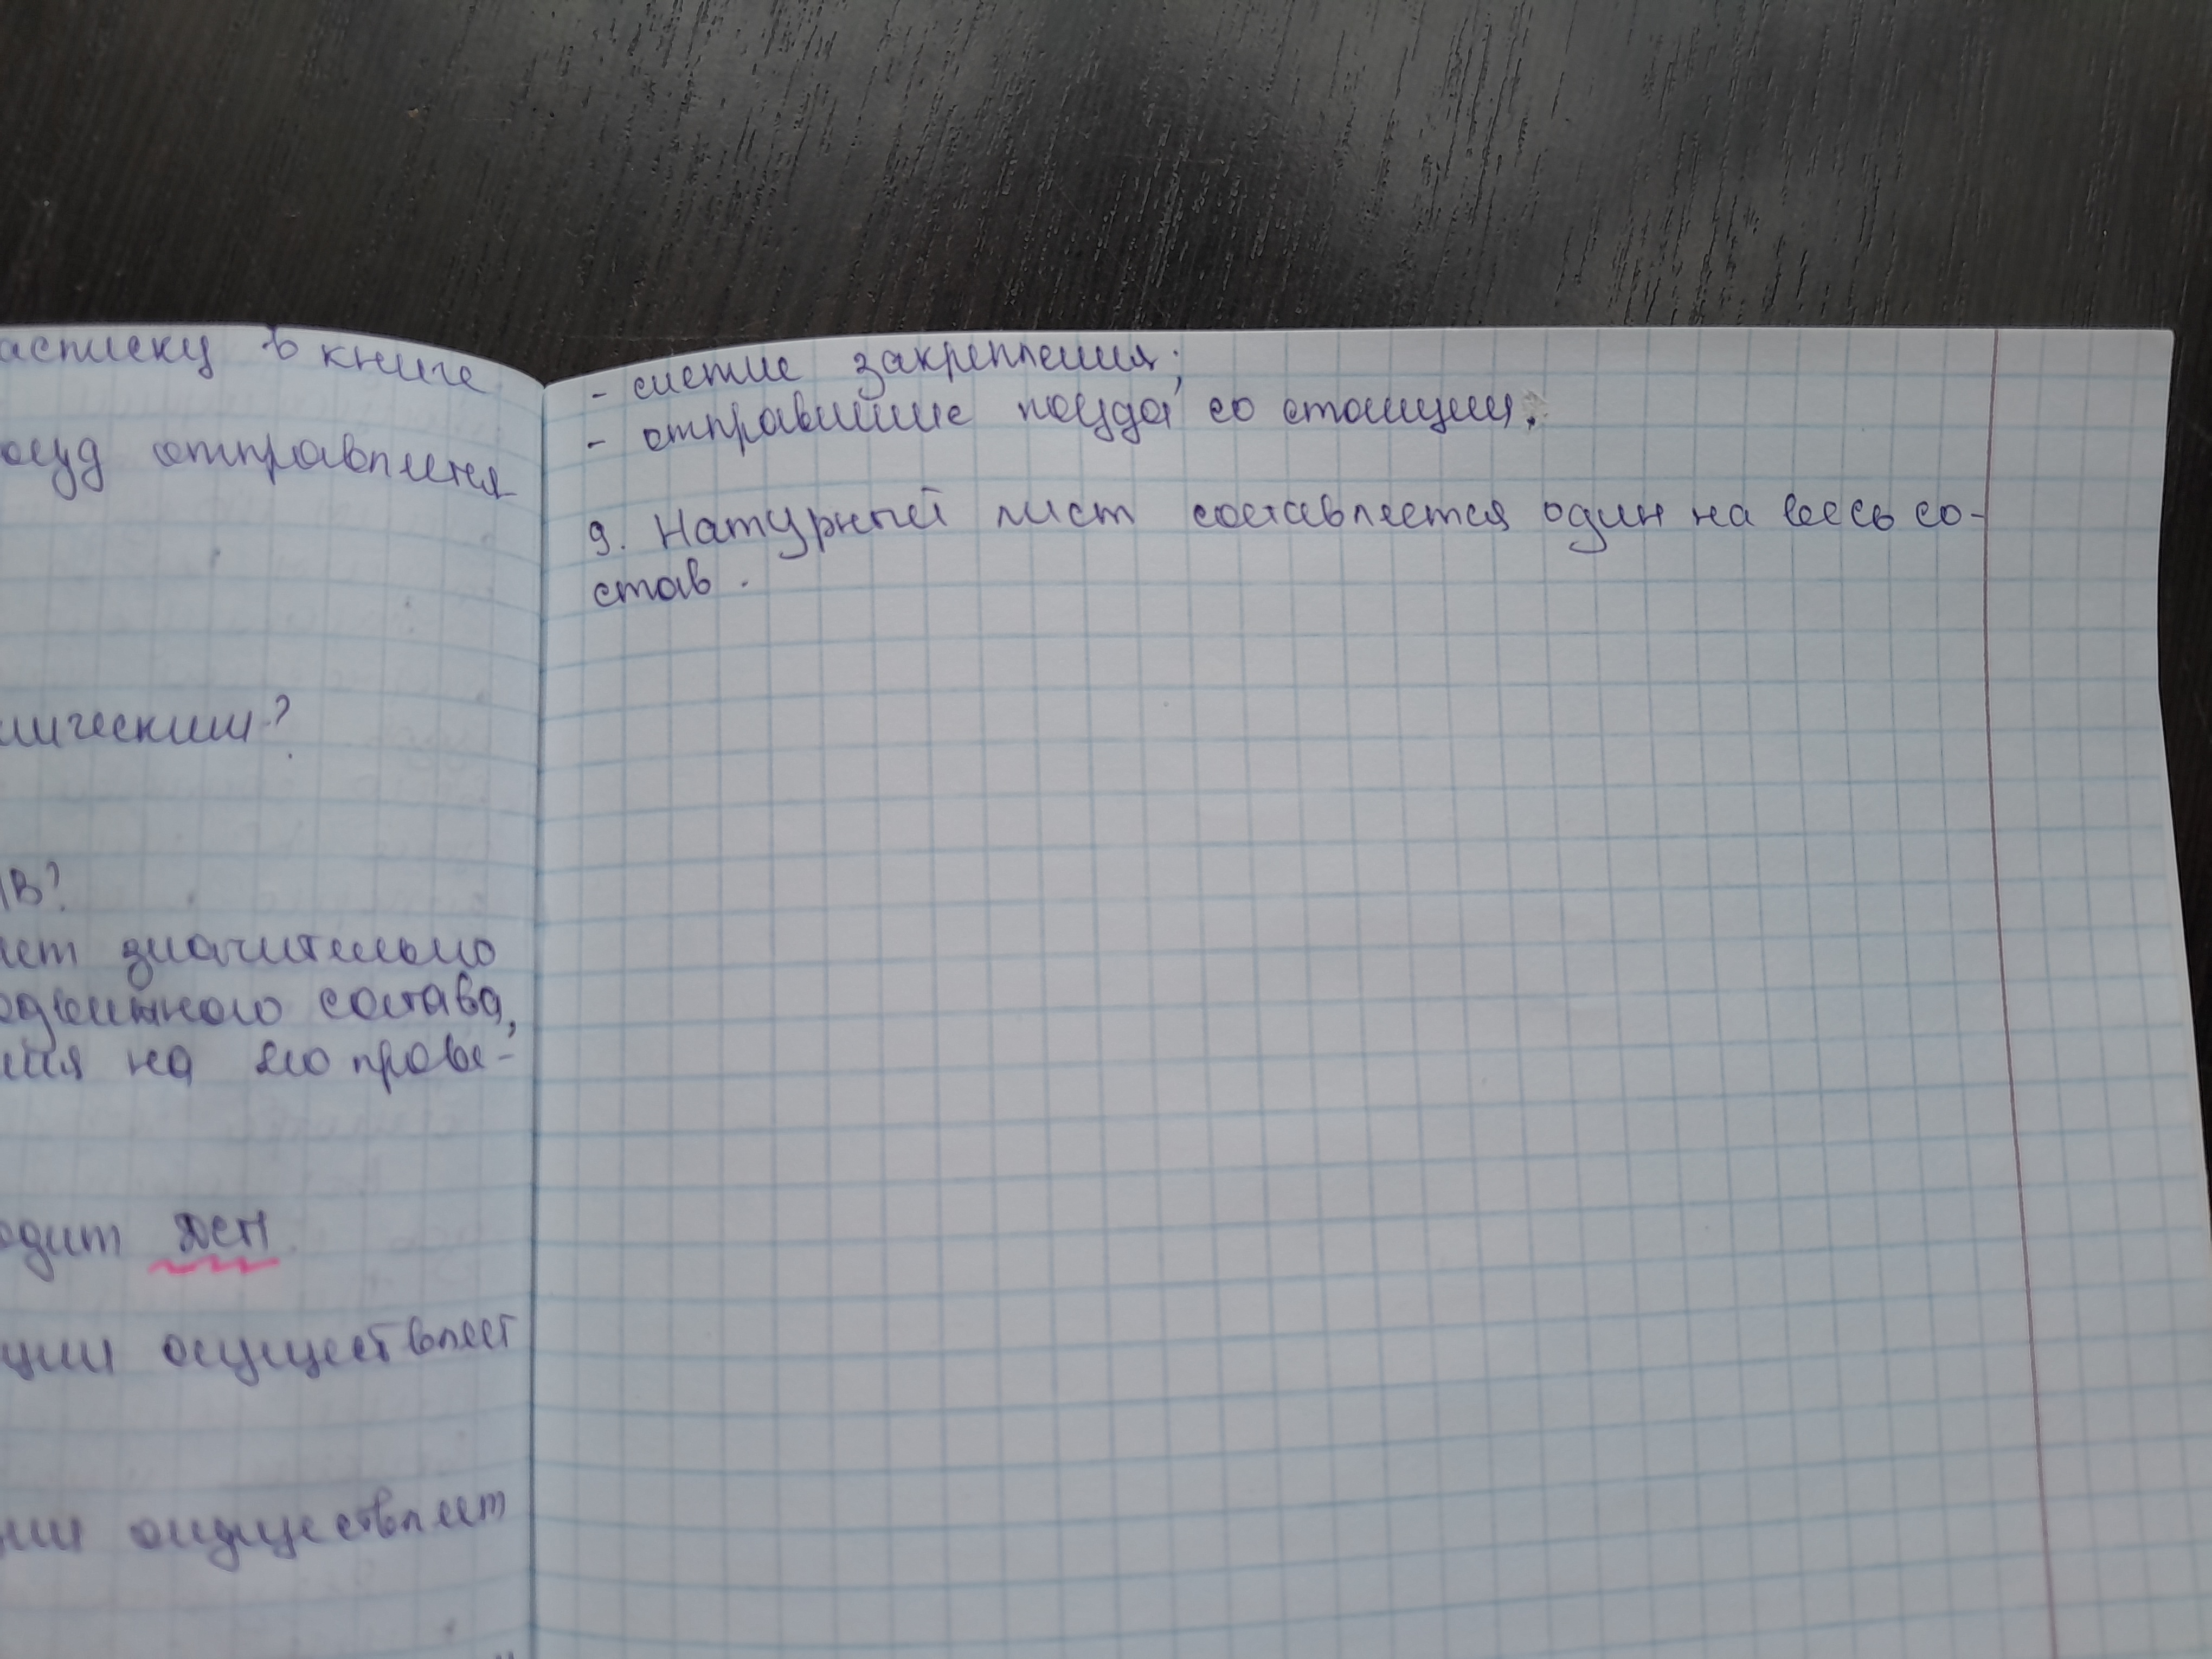 аспи­ску в книге
оезд отправляется
ическим?
ІВ?
яет значительно
одвижного состава,
ния на его прове-
одит ДСП
ции осуществляет
нии осуществляет
- снятие закрепления;
- отправление поезда со станции.
9. Натурный лист составляется один на весь со-
став.